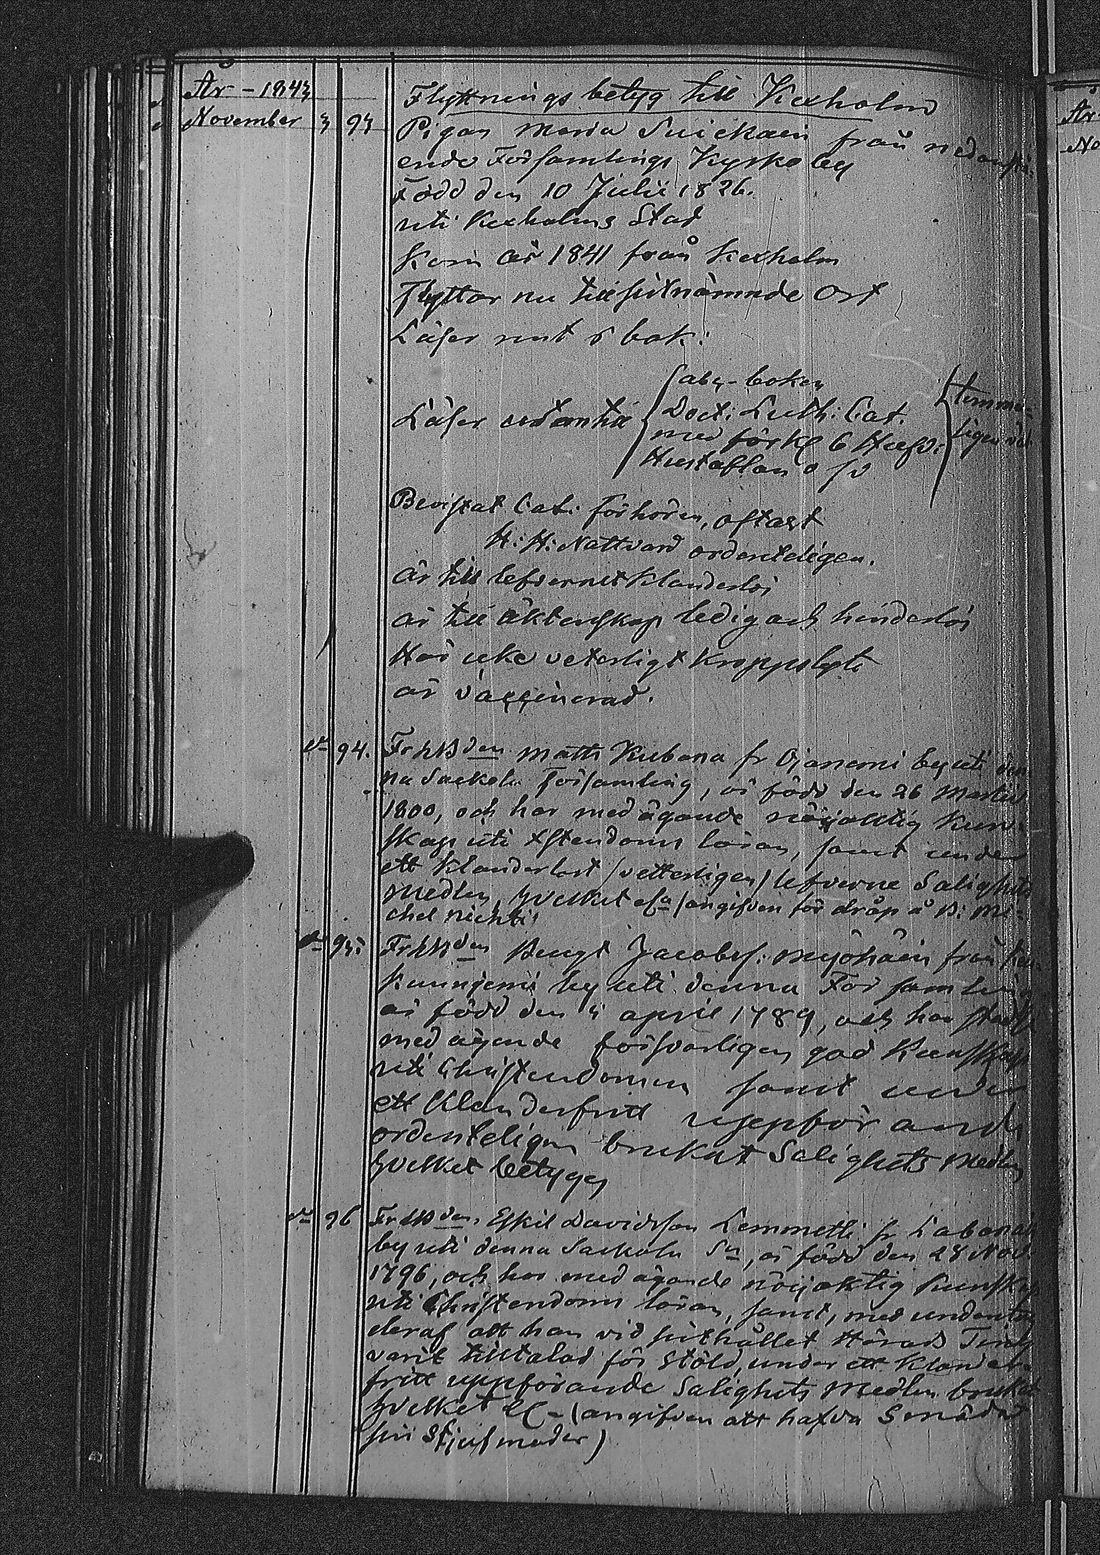 År - 1843
November 3 93
Flyttnings betyg till Kexholm
Pigan Maria Suickain från nedanstå-
ende Församlings Kyrkoby
Född den 10 Julii 1826.
uti Kexholms Stad
Kom år 1841 från Kexholm
Flyttar nu till sistnämnde Ort
Läser rent i bok:
Läser utantill
abc-boken
Doct: Luth: Cat.
med förkl 6 Hufvs:
Hustaflan o sv
temme-
ligen väl
Bevistat Cat: Förhören, oftast
H: H: Nattvard ordenteligen.
är till lefvernet klanderlös
är till äktenskap ledig och hinderlös
Har icke veterligt Kroppslyte
är vaccinerad.
94. Matts Kubana fr Ojaniemi by uti den
na Sackola Församling, är född den 26 Martii
1800, och har med ägande nöjaktig Kun-
skap uti Xstendoms läran, samt under
ett Klanderlöst /vetterligen/ lefverne Salighets
Medlen, hvilket /angifven för dråp å B: Mi-
chel
95. Bengt Jacobss: från
kunniemi by uti denna Församling
är född den 4 april 1789, och har
med ägende försvarligen god Kunskap
uti Christendomen samt under
ett Klanderfritt uppförande
ordenteligen brukat Salighets Medlen
hvilket betygas
96 Eskil Davidsson Lemmetti fr Labanai
by uti denna Sackola Sn, är född den 28 Nov.
1796, och har med ägande nöjaktig kunskap
uti Christendoms läran, samt, med undantag
deraf att han vid sisthållet Härads Ting
varit tilltalad för Stöld, under ett Klander-
fritt uppförande Salighets Medlen brukat
hvilket (angifven att hafva Smädat
sin Stjufmoder)